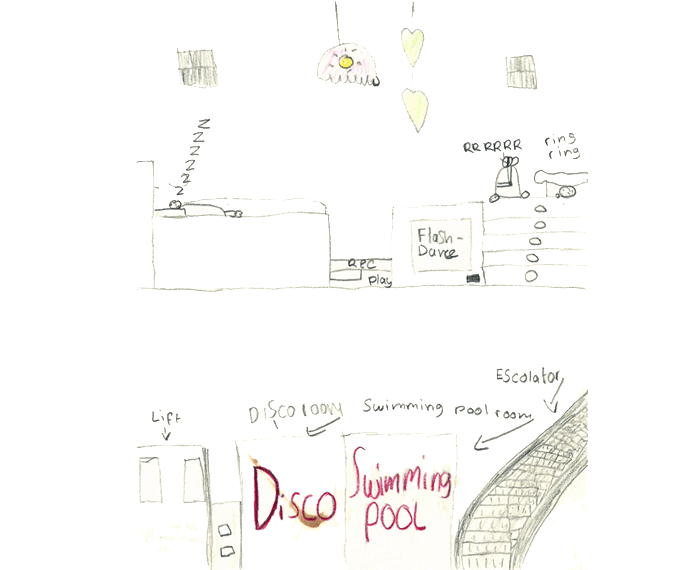 Z
Z
Z
Z
Z
Z
RRRRRR
ring
ring
Flash-
Dance
REC
Play
Escolator
Lift
Disco room
Swimming pool room
Disco
Swimming
POOL